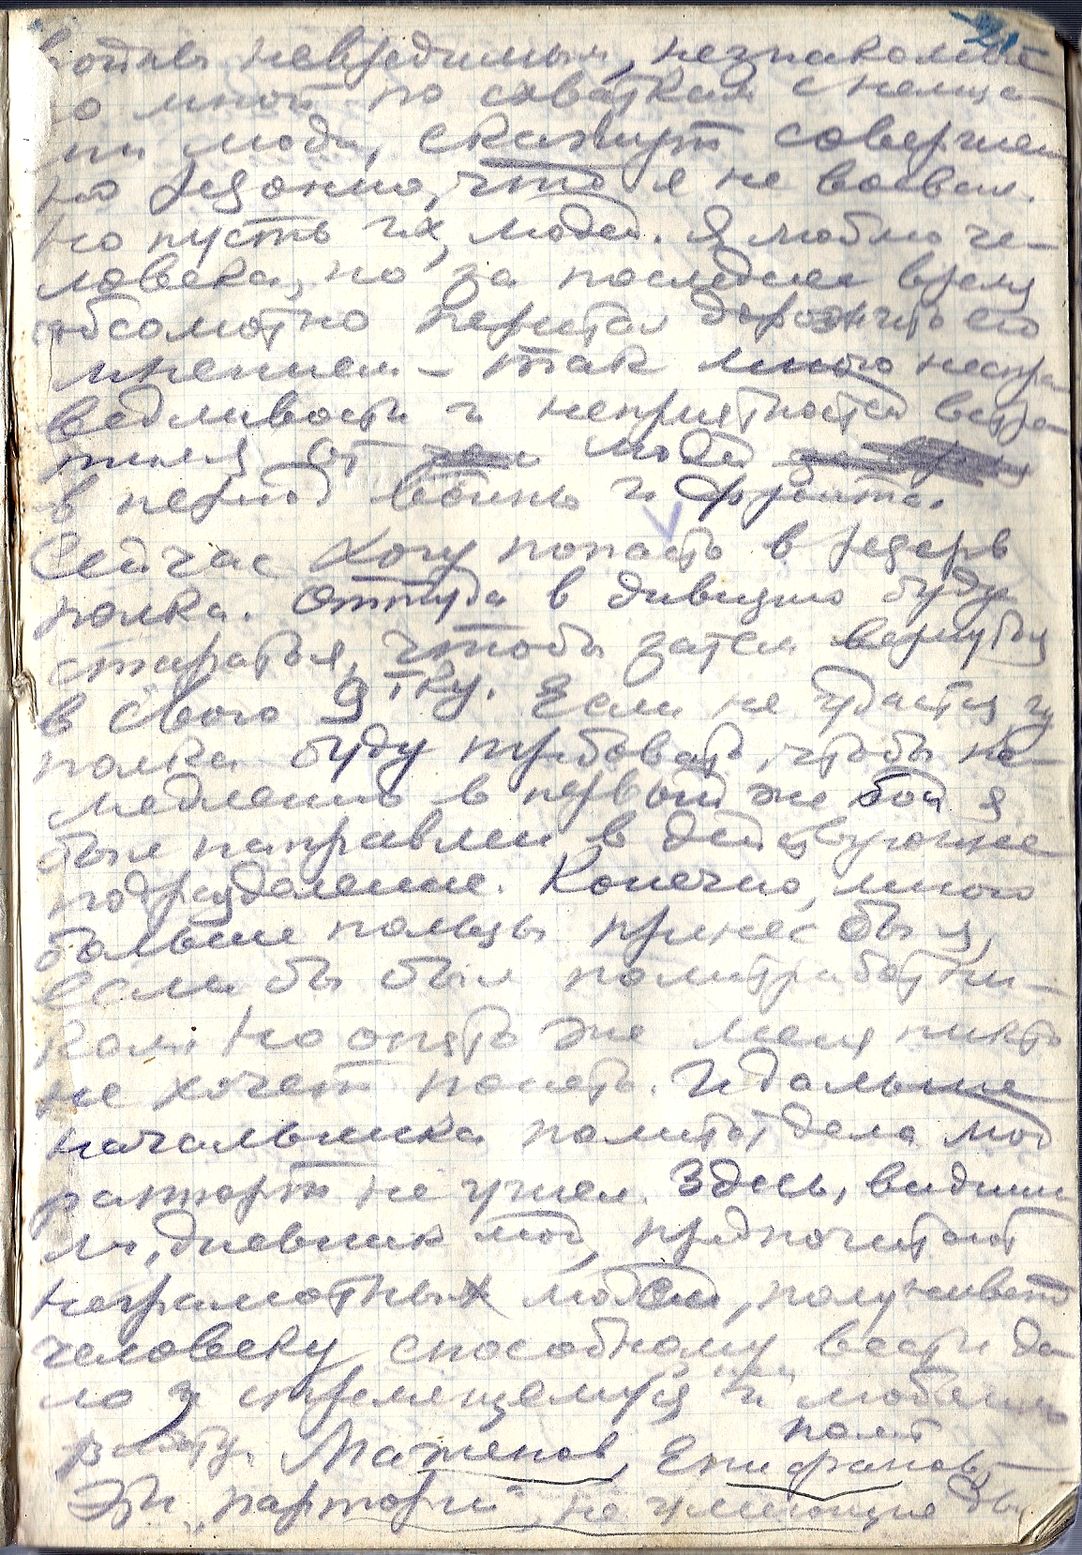 21
войны невредимым, незнакомые
со мной по схваткам с немца-
ми люди, скажут совершен
но резонно, что я не воевал.
Но пусть их, людей. Я люблю че-
ловека, но за последнее время
абсолютно перестал дорожить его
мнением – так много неспра
ведливости и неприятностей встре
тил я от людей
в период войны и фронта.
Сейчас хочу попасть в резерв
полка. Оттуда в дивизию буду
стараться, чтобы затем вернуться
в свою 9тку. Если не удастся, из
полка буду требовать, чтобы не-
медленно в первый же бой я
был направлен в действующее
подразделение. Конечно, много
больше пользы принес бы я,
если бы был политработни-
ком. Но опять же меня никто
не хочет понять. И дальше
начальника политотдела мой
рапорт не ушел. Здесь, видишь
ли, дневник мой, предпочитают
неграмотных людей,
человеку, способному вести де
ло и стремящемуся и любящему
работу. Маженов, Епифанов,
полит
Эти „парторги“, не умеющие дву